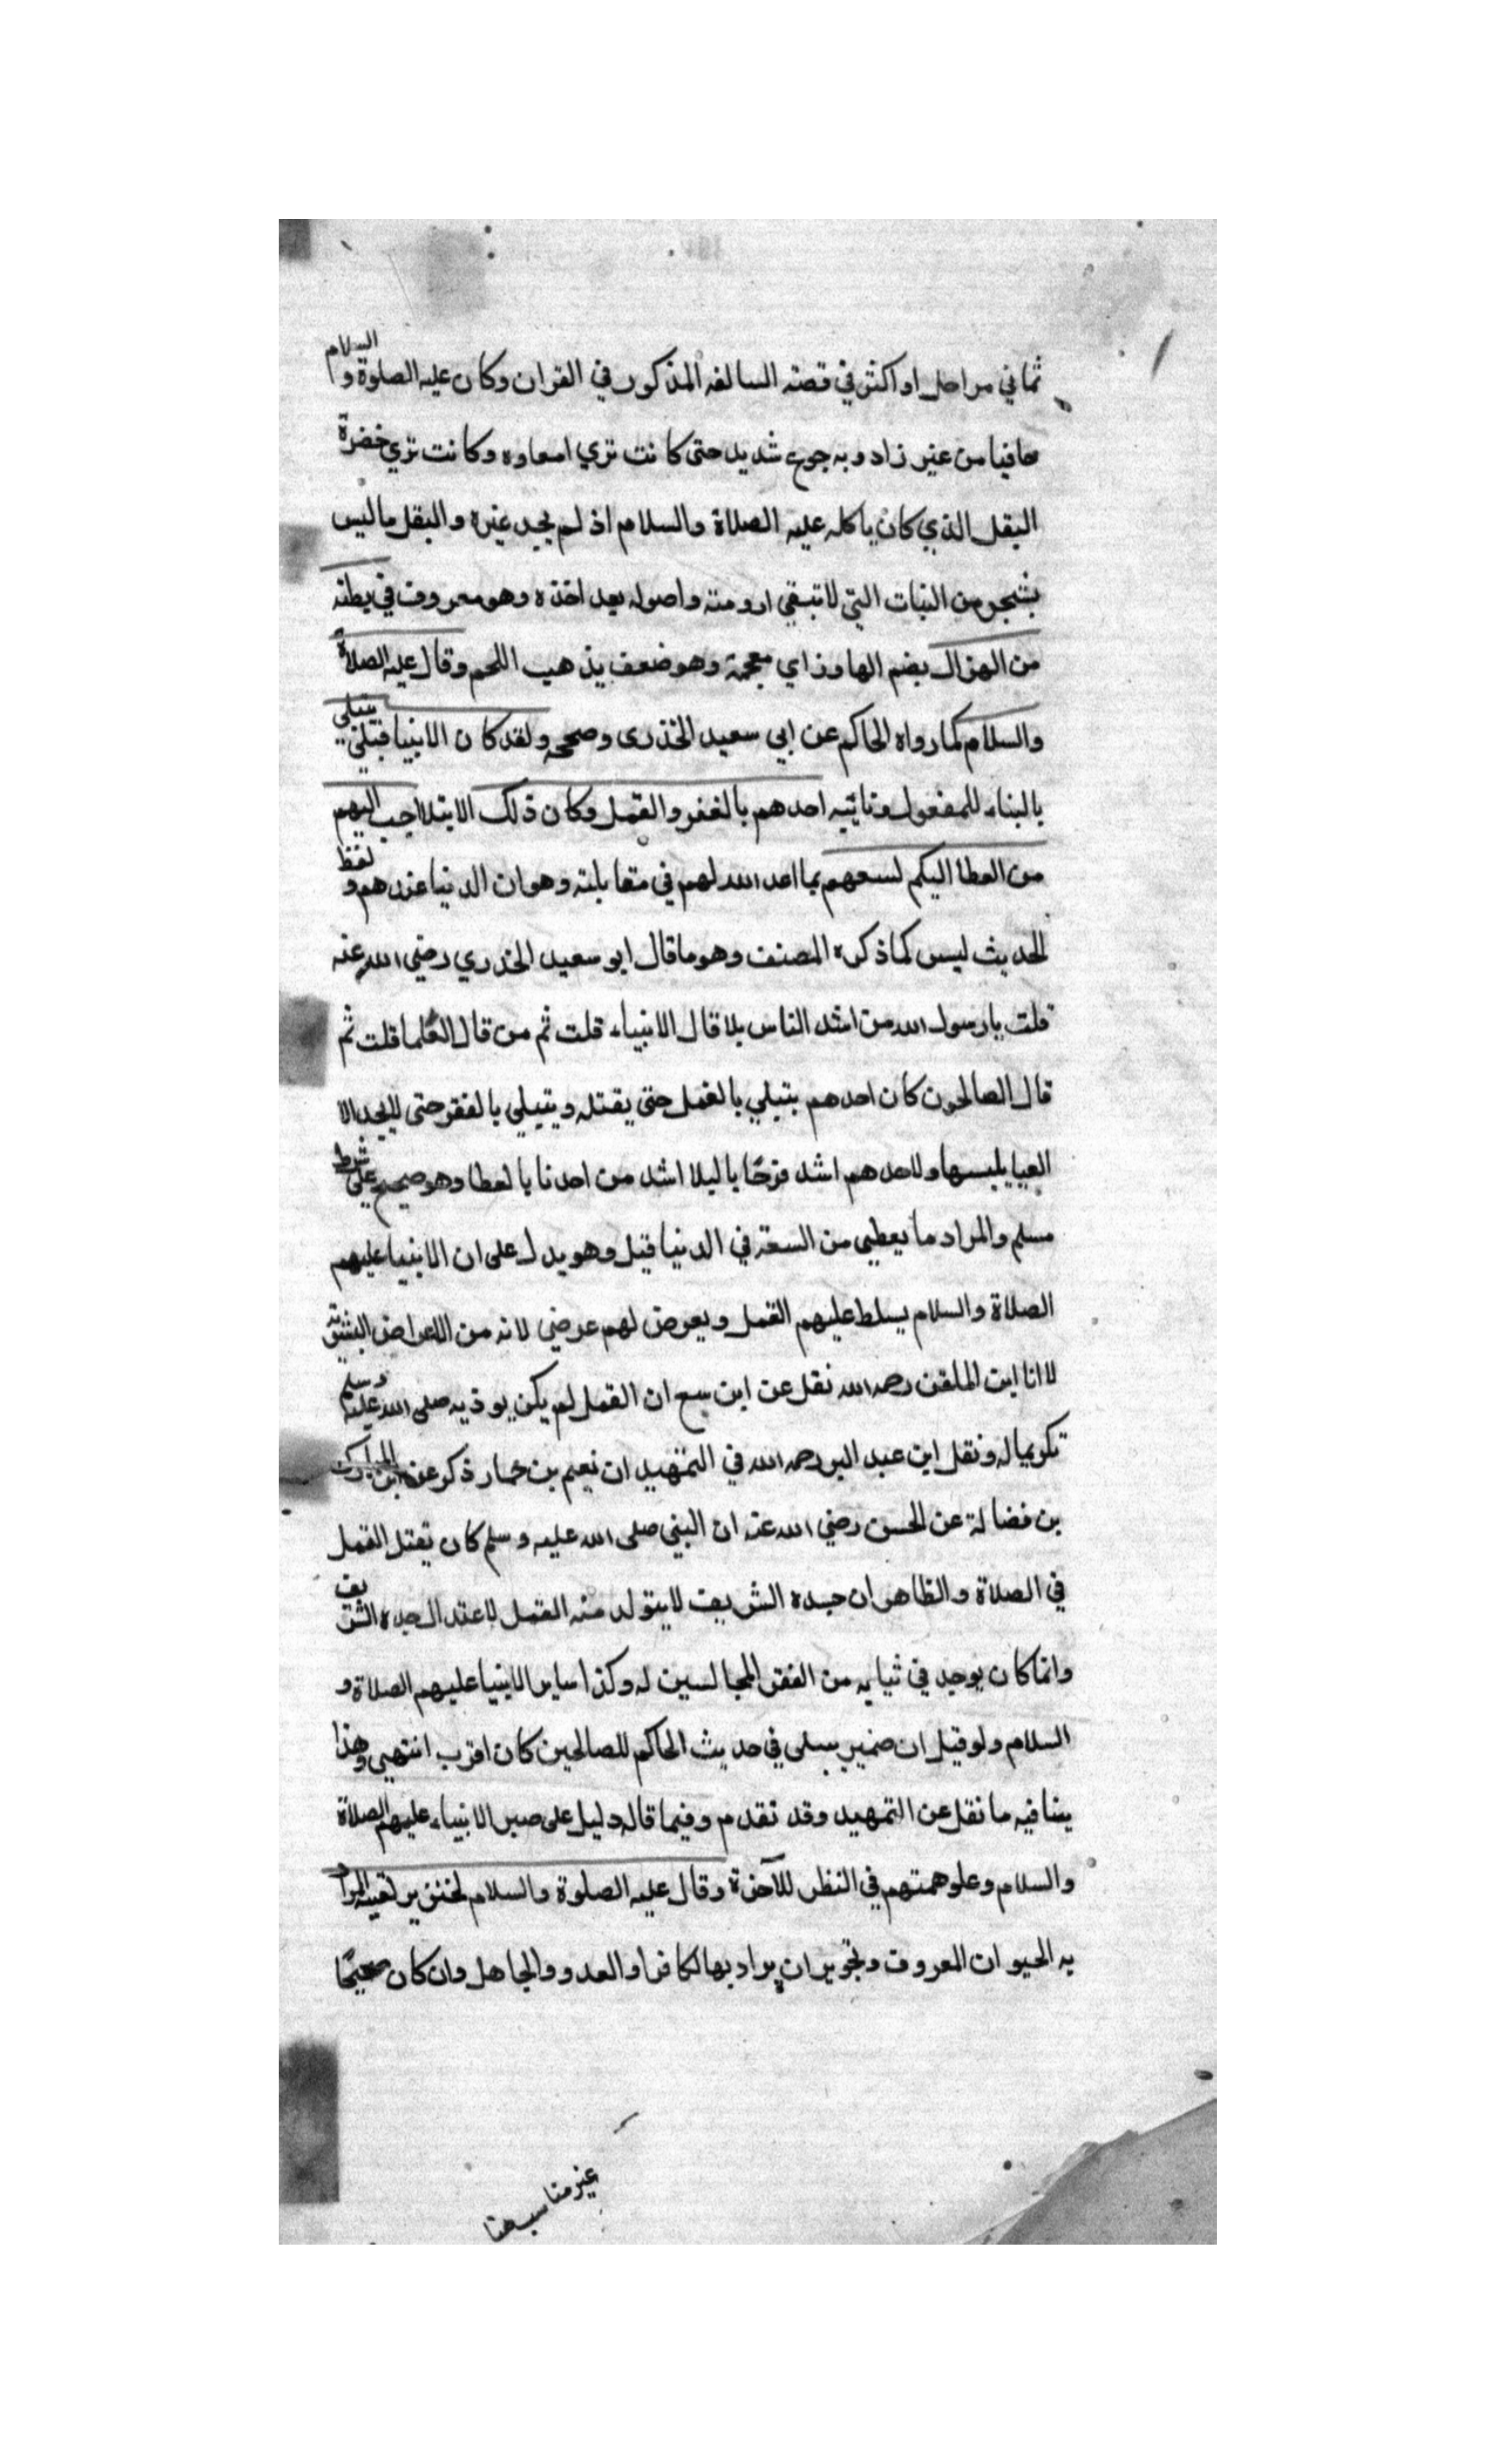 ثماني مراحل او اكثر في قصته السالفه المذكور في القران وكان عليه الصلوة والسلام
حافيا من غير زاد وبه جوع شديد حتى كانت تري امعاوه وكانت تري خضرة
البقل الذي كان ياكله عليه الصلاة والسلام اذ لم يجد غيره والبقل ما ليس
بشجر من النبات التي لا تبقي ارومته واصوله بعد اخذه وهو معروف في بطنه
من الهزال بضم الها وزاي معجمة وهو ضعف يذهب اللحم وقال عليه الصلاة
والسلام كما رواه الحاكم عن ابي سعيد الخذرى وصححه ولقد كان الانبيا قبلي يبتلي
بالبناء للمفعول وتاتيه احدهم بالفقر والقمل وكان ذلك الابتلا احب اليهم
من العطا اليكم لسعهم بما اعد الله لهم في مقابلته وهوان الدنيا عندهم ولفظ
الحديث ليس كما ذكره المصنف وهو ما قال ابو سعيد الخدري رضي الله عنه
قلت يا رسول الله من اشد الناس بلا قال الانبياء قلت ثم من قال العلما قلت ثم
قال الصالحون كان احدهم يبتلي بالقمل حتى يقتله ويبتلي بالفقر حتى لايجد الا
العبا يلبسها ولاحدهم اشد فرحًا بالبلا اشد من احدنا بالعطا وهو صحيح على شرط
مسلم والمراد ما يعطى من السعة في الدنيا قيل وهو يدل على ان الانبيا عليهم
الصلاة والسلام يسلط عليهم القمل ويعرض لهم عرضي لانه من الاعراض البشرية
لا انا ابن الملقن رحمه الله نقل عن ابن سبع ان القمل لم يكن يوذيه صلى الله عليه وسلم
تكريما له ونقل ابن عبد البر رحمه الله في التمهيد ان نعيم بن حمار ذكر عن ابن المبارك
بن فضالة عن الحسن رضي الله عنه ان النبي صلى الله عليه وسلم كان يقتل القمل
في الصلاة والظاهر ان جسده الشريف لا يتولد منه القمل لاعتدال جسده الشريف
وانما كان يوجد في ثيابه من الفقرا المجالسين له وكذا ساير الانبيا عليهم الصلاة و
السلام ولو قيل ان ضمير يبتلى في حديث الحاكم للصالحين كان اقرب انتهى وهذا
ينافيه ما نقل عن التمهيد وقد تقدم وفيما قاله دليل على صبر الانبياء عليهم الصلاة
والسلام وعلو همتهم في النظر للآخرة وقال عليه الصلوة والسلام لخنزير لقيه المراد
به الحيوان المعروف وتجويز ان يراد بها الكافر او العدو والجاهل وان كان صحيحًا
غير مناسب هنا